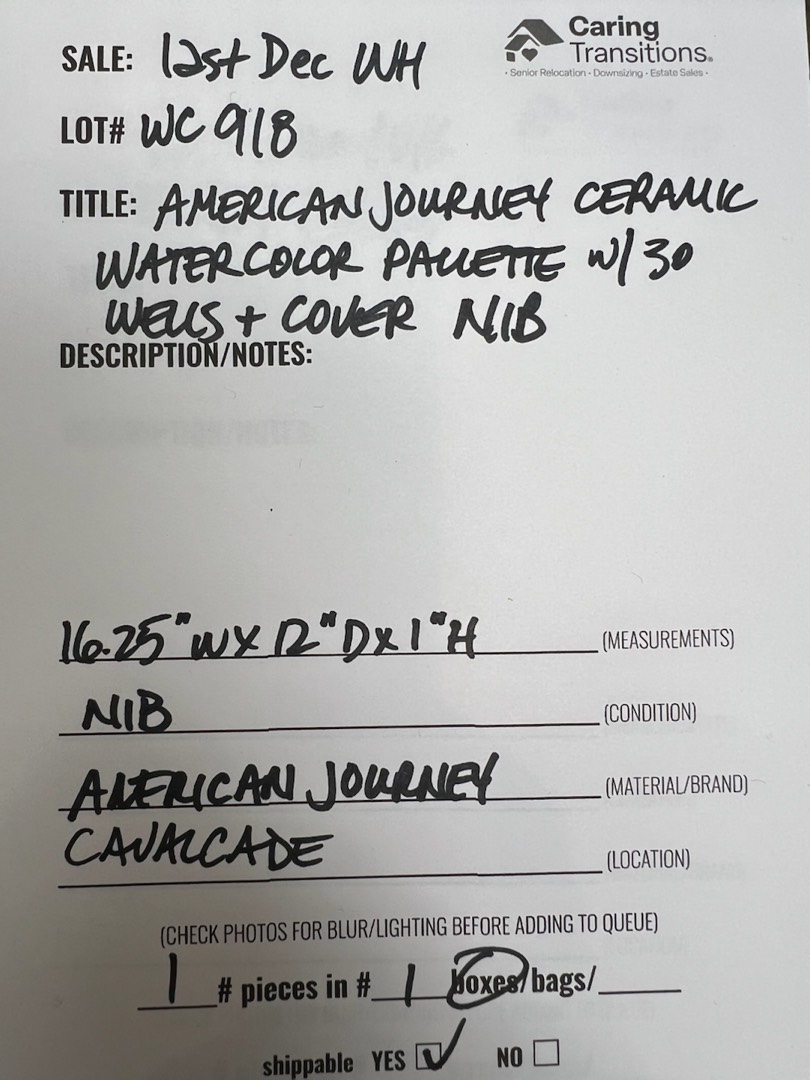 Caring
Transitions®
• Senior Relocation • Downsizing • Estate Sales •
SALE: last Dec WH
LOT# WC 918
TITLE: AMERICAN JOURNEY CERAMIC
WATERCOLOR PALLETTE W/ 30
WELLS + COVER NIB
DESCRIPTION/NOTES:
16.25"WX 12"DX 1"H (MEASUREMENTS)
NIB (CONDITION)
AMERICAN JOURNEY (MATERIAL/BRAND)
CAVALCADE (LOCATION)
(CHECK PHOTOS FOR BLUR/LIGHTING BEFORE ADDING TO QUEUE)
1 # pieces in # 1 boxes/bags/
shippable YES NO